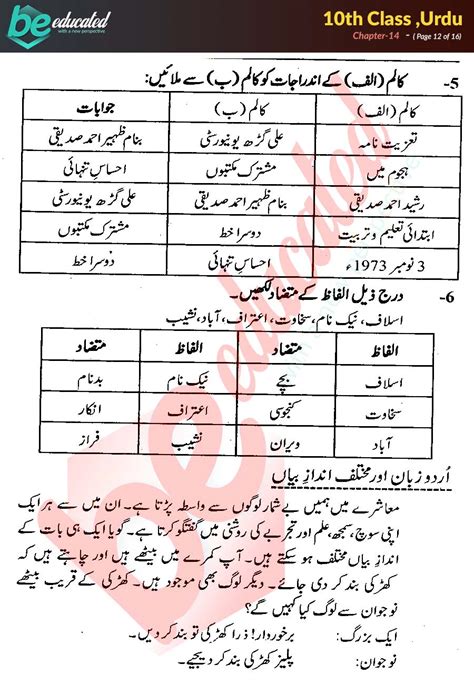 be educated
with a new perspective
10th Class ,Urdu
Chapter-14 - ( Page 12 of 16)
5- کالم (الف) کے اندراجات کو کالم (ب) سے ملائیں:
کالم (الف) کالم (ب) جوابات
تعزیت نامہ علی گڑھ یونیورسٹی بنام ظہیر احمد صدیقی
ہجوم میں مشترک مکتبوں احساسِ تنہائی
رشید احمد صدیقی بنام ظہیر احمد صدیقی علی گڑھ یونیورسٹی
ابتدائی تعلیم و تربیت دوسرا خط مشترک مکتبوں
3 نومبر 1973ء احساسِ تنہائی دوسرا خط
6- درج ذیل الفاظ کے متضاد لکھیں۔
اسلاف، نیک نام، سخاوت، اعتراف، آباد، نشیب
الفاظ متضاد الفاظ متضاد
اسلاف بچے نیک نام بدنام
سخاوت کنجوسی اعتراف انکار
آباد ویران نشیب فراز
اُردو زبان اور مختلف اندازِ بیاں
معاشرے میں ہمیں بے شمار لوگوں سے واسطہ پڑتا ہے۔ ان میں سے ہر ایک
اپنی سوچ، سمجھ، علم اور تجربے کی روشنی میں گفتگو کرتا ہے۔ گویا ایک ہی بات کے
اندازِ بیاں مختلف ہو سکتے ہیں۔ آپ کمرے میں بیٹھے ہیں اور چاہتے ہیں کہ
کھڑکی بند کر دی جائے۔ دیگر لوگ بھی موجود ہیں۔ کھڑکی کے قریب بیٹھے
نوجوان سے لوگ کیا کہیں گے؟
ایک بزرگ: برخوردار! ذرا کھڑکی تو بند کر دیں۔
نوجوان: پلیز کھڑکی بند کر دیجیے۔
be educated